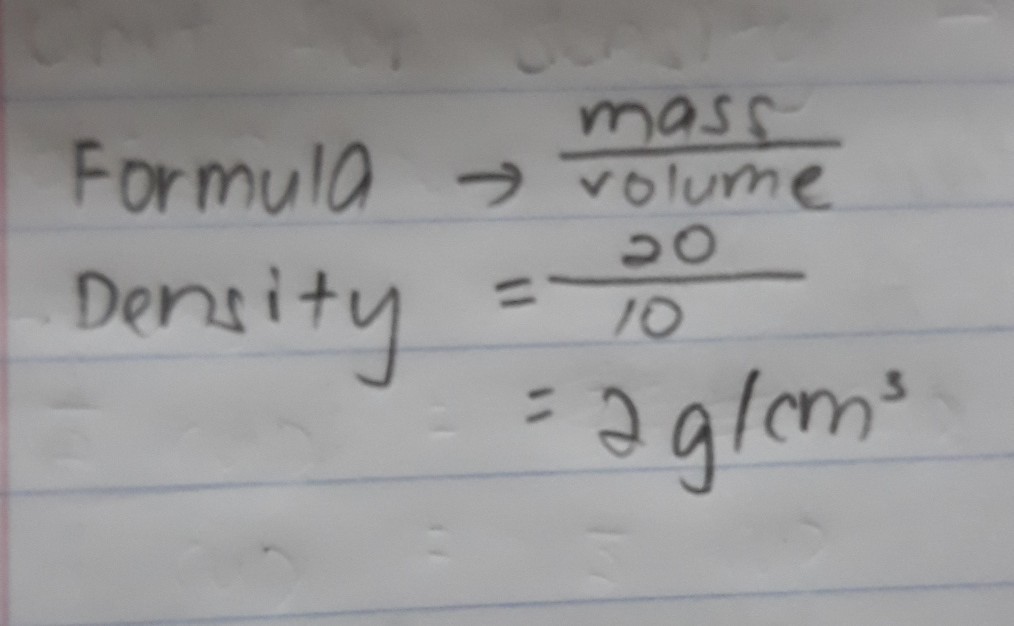 Formula → mass/volume
Density = 20/10
= 2 g/cm³